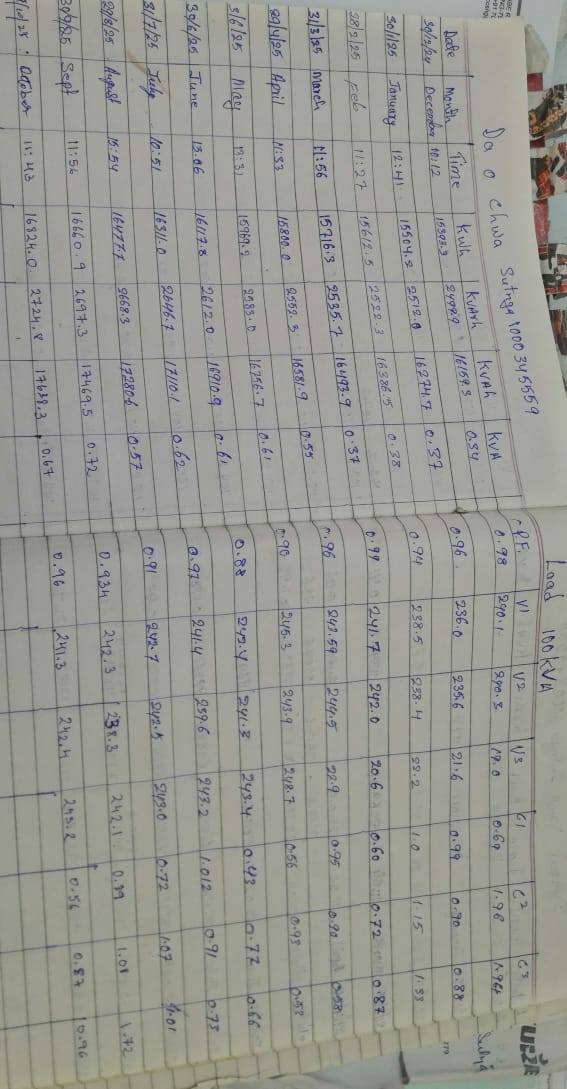 Da o Chwa Sutnga 1000345559 Load 100 KVA
Date Month Time Kwh KVArh KVAh KVA P.F. V1 V2 V3 C1 C2 C3
30/12/24 December 10:12 15393.3 2499.9 16159.3 0.34 0.98 240.1 240.3 19.0 0.69 1.96 1.964
30/1/25 January 12:41 15504.2 2512.0 16274.7 0.37 0.96 236.0 235.6 21.6 0.99 0.90 0.88
28/2/25 Feb 11:27 15612.5 2522.3 16386.5 0.38 0.94 238.5 238.4 22.2 1.0 1.15 1.33
31/3/25 March 11:56 15716.3 2535.7 16493.9 0.37 0.99 241.7 242.0 20.6 0.60 0.72 0.87
29/4/25 April 11:33 15800.0 2552.3 16581.9 0.55 0.96 243.59 244.5 22.9 0.95 0.90 0.58
3/6/25 May 13:31 15969.2 2583.0 16756.7 0.61 0.90 245.3 243.9 248.7 0.56 0.93 0.53
30/6/25 June 13:06 16117.8 2612.0 16910.9 0.61 0.88 242.4 241.3 243.4 0.43 0.77 0.66
31/7/25 July 10:51 16311.0 2646.7 17110.1 0.62 0.97 241.4 239.6 243.2 1.012 0.91 0.73
29/8/25 August 15:54 16477.7 2668.3 17280.6 0.57 0.91 242.7 242.5 243.0 0.72 1.07 1.01
30/9/25 Sept 11:56 16660.9 2697.3 17469.5 0.72 0.934 242.3 238.3 242.1 0.89 1.01 1.72
October 11:43 16824.0 2724.8 17639.3 0.67 0.96 241.3 242.4 243.2 0.56 0.87 0.96